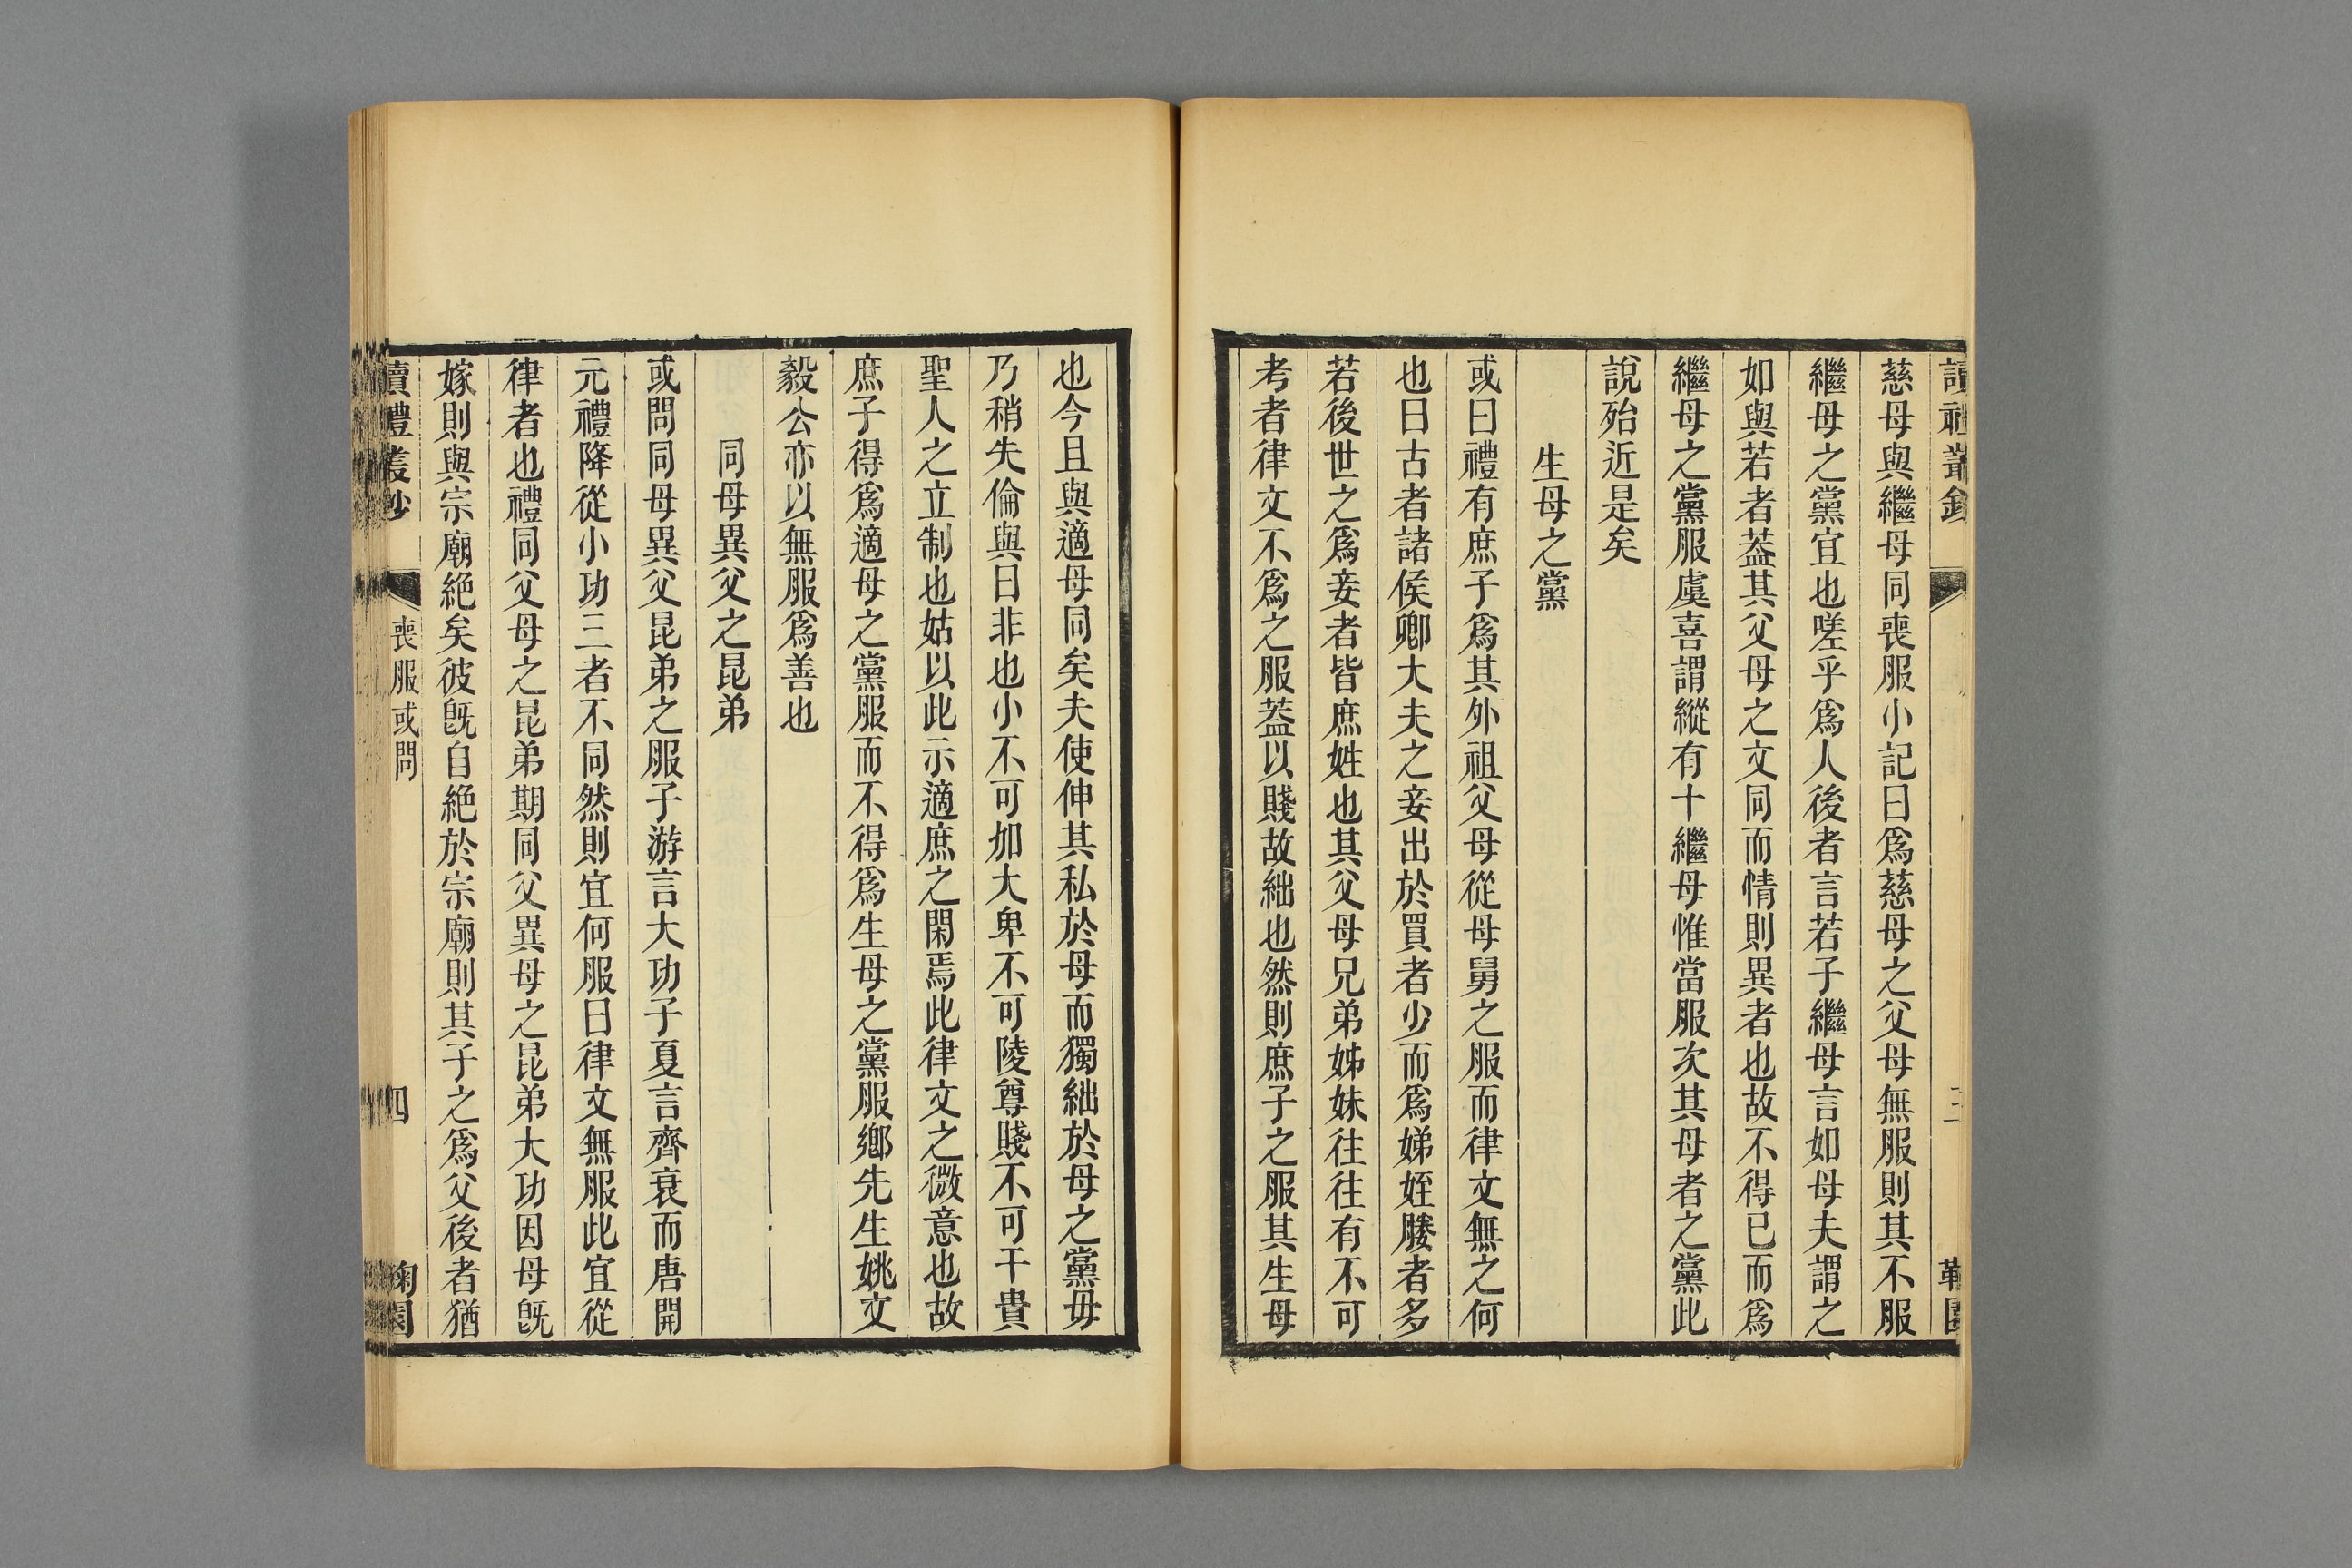 慈母與繼母同喪服小記曰爲慈母之父母無服則其不服
繼母之黨宜也嗟乎爲人後者言若子繼母言如母夫謂之
如與若者葢其父母之文同而情則異者也故不得已而爲
繼母之黨服虞喜謂縱有十繼母惟當服次其母者之黨此
說殆近是矣
生母之黨
或曰禮有庶子爲其外祖父母從母舅之服而律文無之何
也曰古者諸侯卿大夫之妾出於買者少而爲娣姪媵者多
若後世之爲妾者皆庶姓也其父母兄弟姊妹往往有不可
考者律文不爲之服葢以賤故絀也然則庶子之服其生母
也今且與適母同矣夫使伸其私於母而獨絀於母之黨毋
乃稍失倫與曰非也小不可加大卑不可陵尊賤不可干貴
聖人之立制也姑以此示適庶之閑焉此律文之微意也故
庶子得爲適母之黨服而不得爲生母之黨服鄉先生姚文
毅公亦以無服爲善也
同母異父之昆弟
或問同母異父昆弟之服子游言大功子夏言齊衰而唐開
元禮降從小功三者不同然則宜何服曰律文無服此宜從
律者也禮同父母之昆弟期同父異母之昆弟大功因母旣
嫁則與宗廟絶矣彼旣自絶於宗廟則其子之爲父後者猶
讀禮叢鈔
喪服或問
四
鞠園